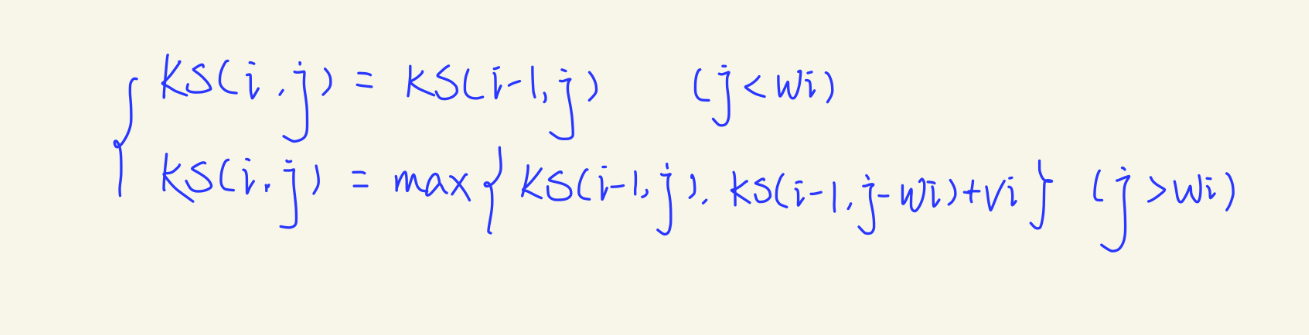 KS(i,j) = KS(i-1,j) (j<wi)
KS(i,j) = max{KS(i-1,j), KS(i-1,j-wi)+vi} (j>wi)